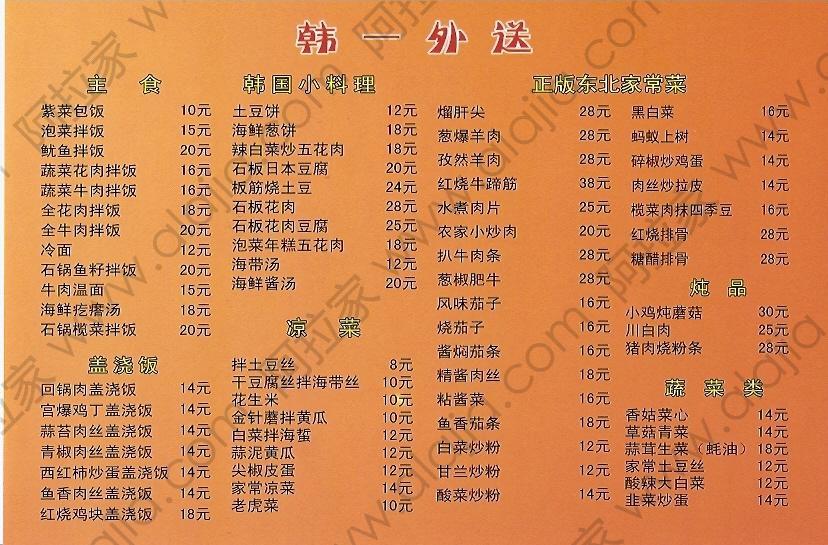 韩一外送
主食
紫菜包饭 10元
泡菜拌饭 15元
鱿鱼拌饭 20元
蔬菜花肉拌饭 16元
蔬菜牛肉拌饭 16元
全花肉拌饭 18元
全牛肉拌饭 20元
冷面 12元
石锅鱼籽拌饭 20元
牛肉温面 15元
海鲜疙瘩汤 18元
石锅榄菜拌饭 20元
盖浇饭
回锅肉盖浇饭 14元
宫爆鸡丁盖浇饭 14元
蒜苔肉丝盖浇饭 14元
青椒肉丝盖浇饭 14元
西红柿炒蛋盖浇饭 14元
鱼香肉丝盖浇饭 14元
红烧鸡块盖浇饭 18元
韩国小料理
土豆饼 12元
海鲜葱饼 18元
辣白菜炒五花肉 18元
石板日本豆腐 20元
板筋烧土豆 24元
石板花肉 28元
石板花肉豆腐 25元
泡菜年糕五花肉 18元
海带汤 12元
海鲜酱汤 20元
凉菜
拌土豆丝 8元
干豆腐丝拌海带丝 10元
花生米 10元
金针蘑拌黄瓜 10元
白菜拌海蜇 12元
蒜泥黄瓜 10元
尖椒皮蛋 12元
家常凉菜 14元
老虎菜 10元
正版东北家常菜
熘肝尖 28元
葱爆羊肉 28元
孜然羊肉 28元
红烧牛蹄筋 38元
水煮肉片 25元
农家小炒肉 20元
扒牛肉条 28元
葱椒肥牛 28元
风味茄子 16元
烧茄子 16元
酱焖茄条 16元
精酱肉丝 18元
粘酱菜 16元
鱼香茄条 18元
白菜炒粉 12元
甘兰炒粉 12元
酸菜炒粉 14元
黑白菜 16元
蚂蚁上树 14元
碎椒炒鸡蛋 14元
肉丝炒拉皮 14元
榄菜肉抹四季豆 16元
红烧排骨 28元
糖醋排骨 28元
炖品
小鸡炖蘑菇 30元
川白肉 25元
猪肉烧粉条 28元
蔬菜类
香菇菜心 14元
草菇青菜 14元
蒜茸生菜（蚝油） 18元
家常土豆丝 12元
酸辣大白菜 12元
韭菜炒蛋 14元
阿拉家 www.alajia.com